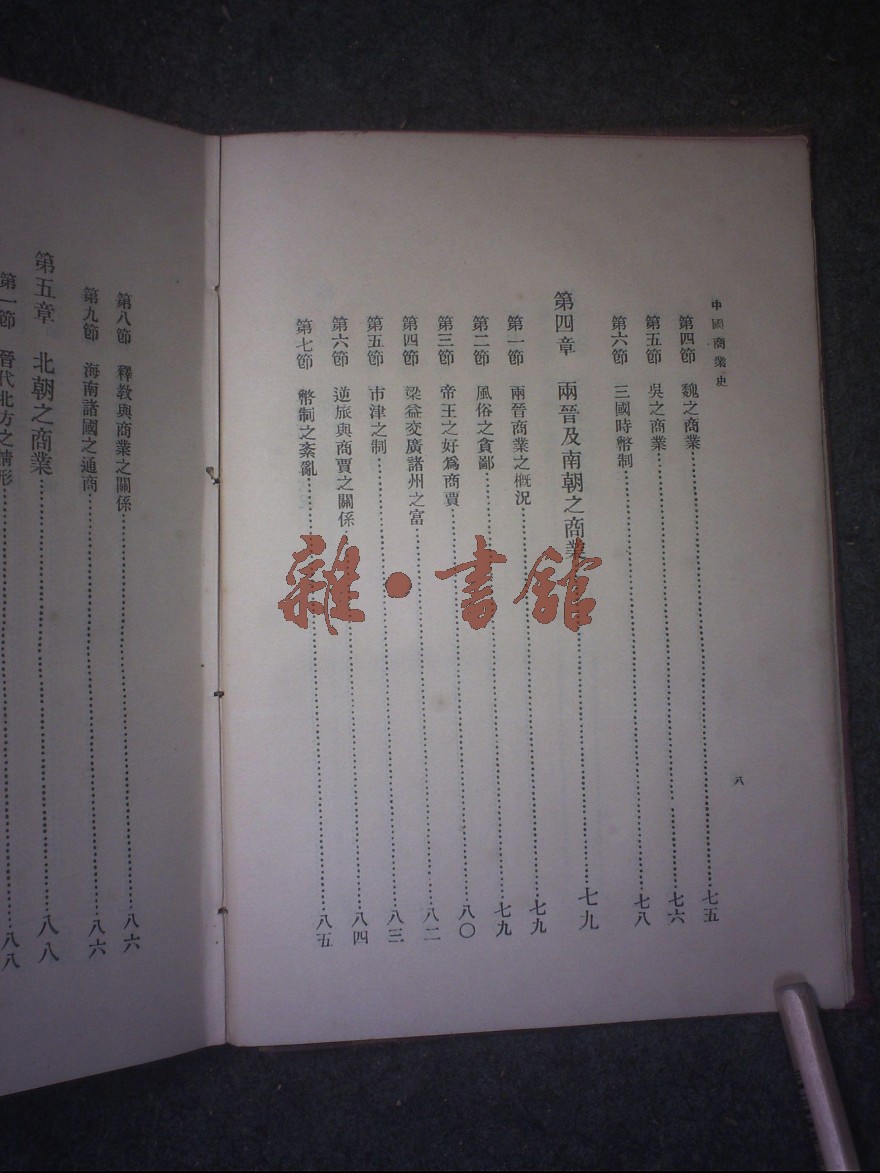 中國商業史
八
第四節 魏之商業 七五
第五節 吳之商業 七六
第六節 三國時幣制 七八
第四章 兩晉及南朝之商業 七九
第一節 兩晉商業之概況 七九
第二節 風俗之貪鄙 七九
第三節 帝王之好爲商賈 八〇
第四節 梁益交廣諸州之富 八二
第五節 市津之制 八三
第六節 逆旅與商賈之關係 八四
第七節 幣制之紊亂 八五
第八節 釋教與商業之關係 八六
第九節 海南諸國之通商 八六
第五章 北朝之商業 八八
第一節 晉代北方之情形 八八
雜·書館